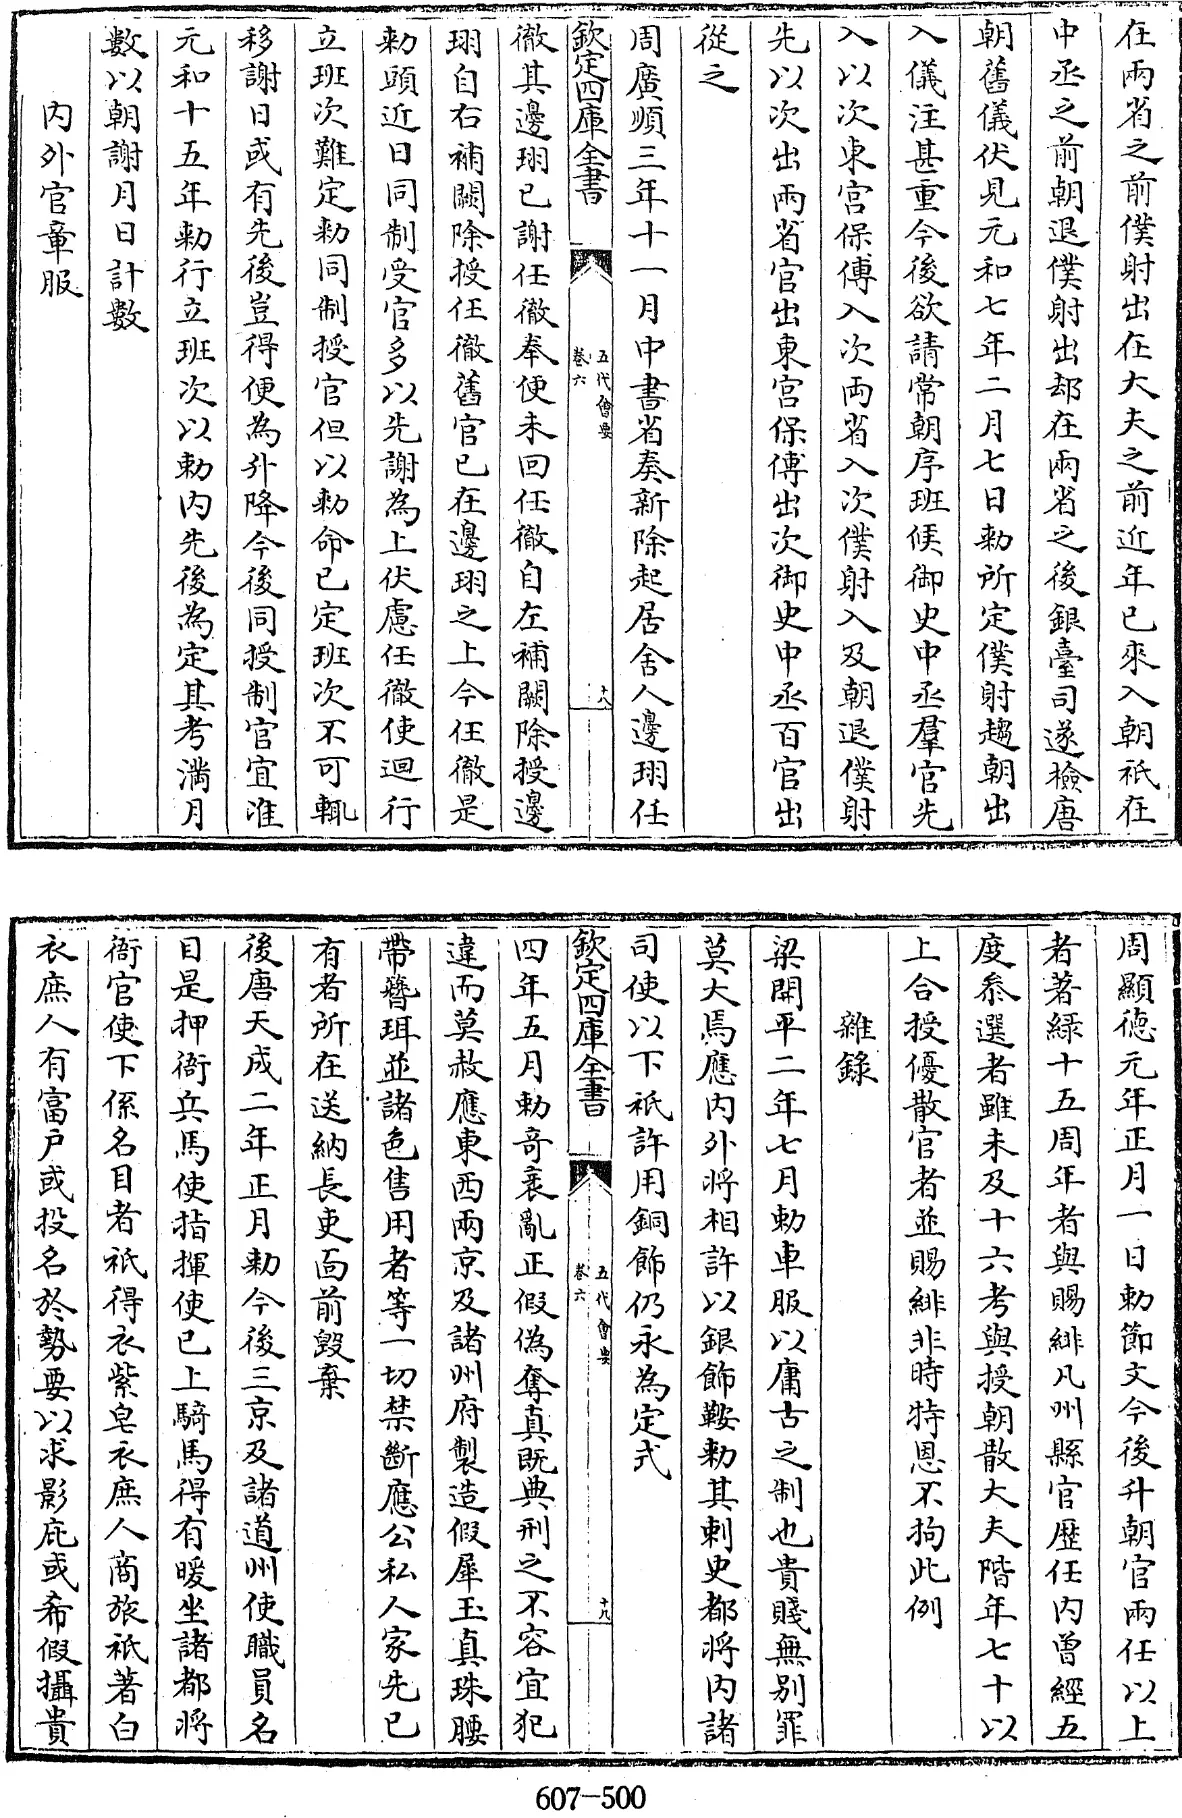 在兩省之前僕射出在大夫之前近年已來入朝祇在
中丞之前朝退僕射出却在兩省之後銀臺司遂檢唐
朝舊儀伏見元和七年二月七日勅所定僕射趨朝出
入儀注甚重今後欲請常朝序班候御史中丞羣官先
入以次東宮保傅入次兩省入次僕射入及朝退僕射
先以次出兩省官出東宮保傅出次御史中丞百官出
從之
周廣順三年十一月中書省奏新除起居舍人邊珝任
欽定四庫全書
五代會要
卷六
十八
徹其邊珝已謝任徹奉使未回任徹自左補闕除授邊
珝自右補闕除授任徹舊官已在邊珝之上今任徹是
勅頭近日同制受官多以先謝為上伏慮任徹使迴行
立班次難定勅同制授官但以勅命已定班次不可輒
移謝日或有先後豈得便為升降今後同授制官宜准
元和十五年勅行立班次以勅內先後為定其考滿月
數以朝謝月日計數
內外官章服
周顯徳元年正月一日勅節文今後升朝官兩任以上
者著緑十五周年者與賜緋凡州縣官歴任内曾經五
度叅選者雖未及十六考與授朝散大夫階年七十以
上合授優散官者並賜緋非時特恩不拘此例
雜錄
梁開平二年七月勅車服以庸古之制也貴賤無别罪
莫大焉應内外將相許以銀飾鞍勅其刺史都將内諸
司使以下祇許用銅飾仍永為定式
欽定四庫全書
五代會要
卷六
十九
四年五月勅竒衺亂正假偽奪真既典刑之不容宜犯
違而莫赦應東西兩京及諸州府製造假犀玉真珠腰
帶簪珥並諸色售用者等一切禁斷應公私人家先已
有者所在送納長吏面前毀棄
後唐天成二年正月勅今後三京及諸道州使職員名
目是押衙兵馬使指揮使已上騎馬得有暖坐諸都將
衙官使下係名目者祇得衣紫皂衣庶人商旅祇著白
衣庶人有富户或投名於勢要以求影庇或希假攝貴
607-500